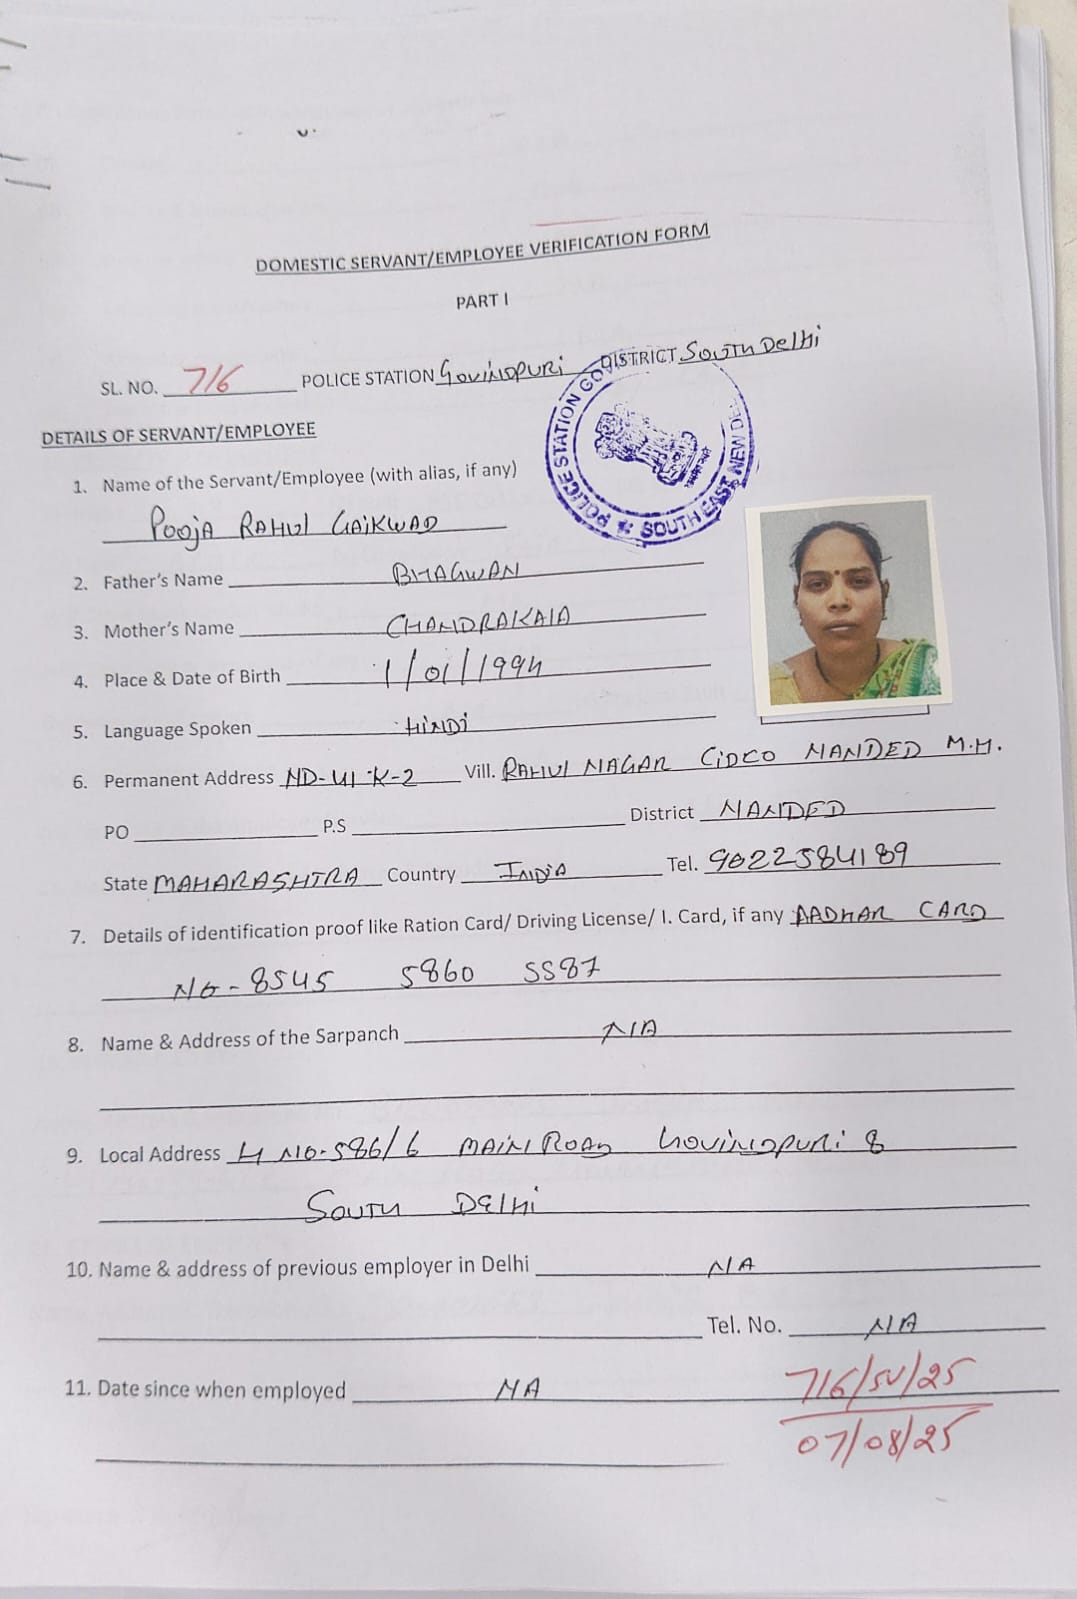 DOMESTIC SERVANT/EMPLOYEE VERIFICATION FORM
PART I
SL. NO. 716 POLICE STATION GOVINDPURI DISTRICT SOUTH DELHI
POLICE STATION GO
SOUTH EAST NEW DE
DETAILS OF SERVANT/EMPLOYEE
1. Name of the Servant/Employee (with alias, if any)
POOJA RAHUL GAIKWAD
2. Father's Name BHAGWAN
3. Mother's Name CHANDRAKALA
4. Place & Date of Birth 1/01/1994
5. Language Spoken HINDI
6. Permanent Address ND-41-K-2 Vill. RAHUL NAGAR CIDCO NANDED M.H.
PO P.S District NANDED
State MAHARASHTRA Country INDIA Tel. 9022584189
7. Details of identification proof like Ration Card/ Driving License/ I. Card, if any AADHAR CARD
NO-8545 5860 5587
8. Name & Address of the Sarpanch N/A
9. Local Address H NO-586/6 MAIN ROAD GOVINDPURI 8
SOUTH DELHI
10. Name & address of previous employer in Delhi N/A
Tel. No. N/A
11. Date since when employed NA
716/SV/25
07/08/25